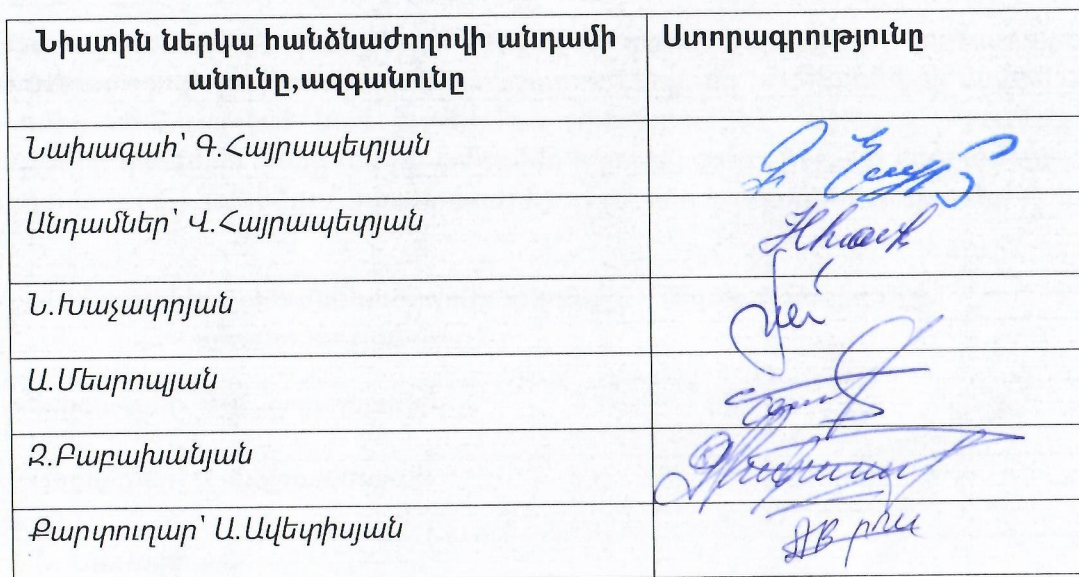 Նիստին ներկա հանձնաժողովի անդամի Ստորագրությունը
անունը,ազգանունը
Նախագահ՝ Գ.Հայրապետյան
Անդամներ՝ Վ.Հայրապետյան
Ն.Խաչատրյան
Ա.Մեսրոպյան
Զ.Բաբախանյան
Քարտուղար՝ Ա.Ավետիսյան